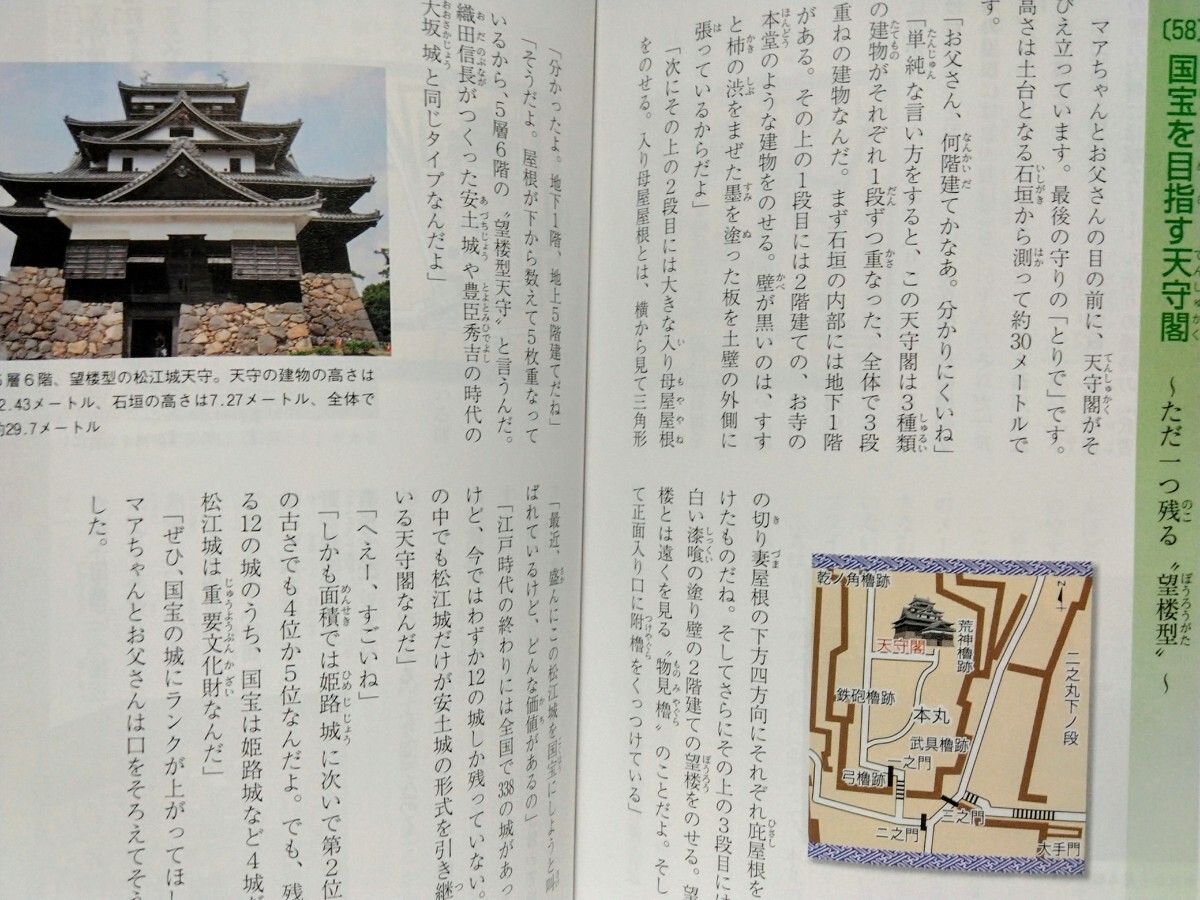 〔58〕国宝を目指す天守閣 〜ただ一つ残る〝望楼型〟〜
マアちゃんとお父さんの目の前に、天守閣がそ
びえ立っています。最後の守りの「とりで」です。
高さは土台となる石垣から測って約30メートルで
す。
「お父さん、何階建てかなあ。分かりにくいね」
「単純な言い方をすると、この天守閣は3種類
の建物がそれぞれ1段ずつ重なった、全体で3段
重ねの建物なんだ。まず石垣の内部には地下1階
がある。その上の1段目には2階建ての、お寺の
本堂のような建物をのせる。壁が黒いのは、すす
と柿の渋をまぜた墨を塗った板を土壁の外側に
張っているからだよ」
「次にその上の2段目には大きな入り母屋屋根
をのせる。入り母屋屋根とは、横から見て三角形
の切り妻屋根の下方四方向にそれぞれ庇屋根を
けたものだね。そしてさらにその上の3段目には
白い漆喰の塗り壁の2階建ての望楼をのせる。望
楼とは遠くを見る〝物見櫓〟のことだよ。そし
て正面入り口に附櫓をくっつけている」
乾ノ角櫓跡
荒神櫓跡
天守閣
二之丸下ノ段
鉄砲櫓跡
本丸
武具櫓跡
一之門
弓櫓跡
二之門
三之門
大手門
N
「分かったよ。地下1階、地上5階建てだね」
「そうだよ。屋根が下から数えて5枚重なって
いるから、5層6階の〝望楼型天守〟と言うんだ。
織田信長がつくった安土城や豊臣秀吉の時代の
大坂城と同じタイプなんだよ」
5層6階、望楼型の松江城天守。天守の建物の高さは
2.43メートル、石垣の高さは7.27メートル、全体で
約29.7メートル
「最近、盛んにこの松江城を国宝にしようと叫
ばれているけど、どんな価値があるの」
「江戸時代の終わりには全国で338の城があっ
けど、今ではわずか12の城しか残っていない。
の中でも松江城だけが安土城の形式を引き継
いる天守閣なんだ」
「へえー、すごいね」
「しかも面積では姫路城に次いで第2位
の古さでも4位か5位なんだよ。でも、残
る12の城のうち、国宝は姫路城など4城だ
松江城は重要文化財なんだ」
「ぜひ、国宝の城にランクが上がってほし
マアちゃんとお父さんは口をそろえてそう
した。